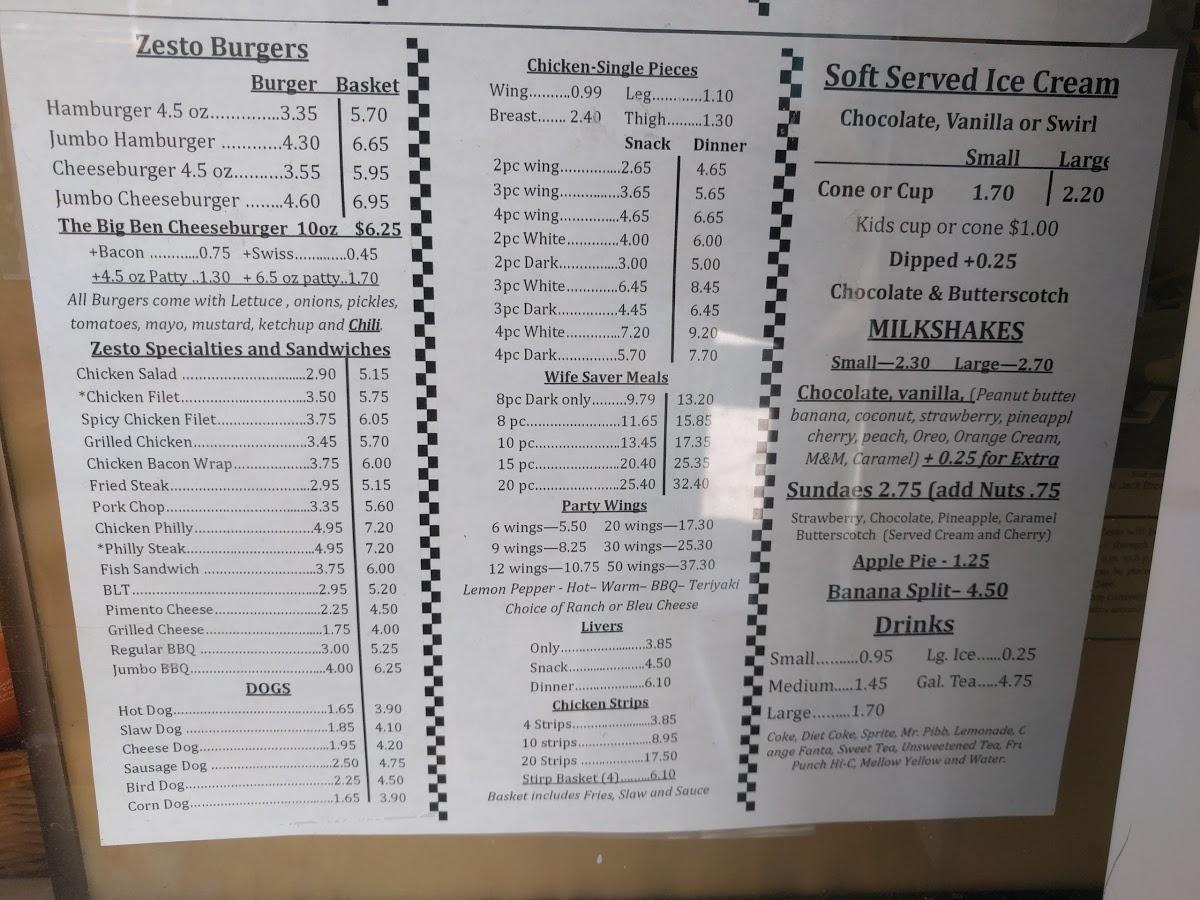 Zesto Burgers
Burger Basket
Hamburger 4.5 oz..............3.35 5.70
Jumbo Hamburger ............4.30 6.65
Cheeseburger 4.5 oz..........3.55 5.95
Jumbo Cheeseburger ........4.60 6.95
The Big Ben Cheeseburger 10oz $6.25
+Bacon ............0.75 +Swiss............0.45
+4.5 oz Patty ..1.30 + 6.5 oz patty..1.70
All Burgers come with Lettuce , onions, pickles,
tomatoes, mayo, mustard, ketchup and Chili.
Zesto Specialties and Sandwiches
Chicken Salad ...............................2.90 5.15
*Chicken Filet............................3.50 5.75
Spicy Chicken Filet.......................3.75 6.05
Grilled Chicken............................3.45 5.70
Chicken Bacon Wrap...................3.75 6.00
Fried Steak....................................2.95 5.15
Pork Chop.....................................3.35 5.60
Chicken Philly..............................4.95 7.20
*Philly Steak................................4.95 7.20
Fish Sandwich .............................3.75 6.00
BLT................................................2.95 5.20
Pimento Cheese...........................2.25 4.50
Grilled Cheese..............................1.75 4.00
Regular BBQ ...............................3.00 5.25
Jumbo BBQ...................................4.00 6.25
DOGS
Hot Dog.......................................1.65 3.90
Slaw Dog .....................................1.85 4.10
Cheese Dog.................................1.95 4.20
Sausage Dog ...............................2.50 4.75
Bird Dog.......................................2.25 4.50
Corn Dog.....................................1.65 3.90
Chicken-Single Pieces
Wing..........0.99 Leg............1.10
Breast....... 2.40 Thigh.........1.30
Snack Dinner
2pc wing...............2.65 4.65
3pc wing...............3.65 5.65
4pc wing...............4.65 6.65
2pc White.............4.00 6.00
2pc Dark...............3.00 5.00
3pc White.............6.45 8.45
3pc Dark...............4.45 6.45
4pc White.............7.20 9.20
4pc Dark...............5.70 7.70
Wife Saver Meals
8pc Dark only........9.79 13.20
8 pc.......................11.65 15.85
10 pc.....................13.45 17.35
15 pc.....................20.40 25.35
20 pc.....................25.40 32.40
Party Wings
6 wings—5.50 20 wings—17.30
9 wings—8.25 30 wings—25.30
12 wings—10.75 50 wings—37.30
Lemon Pepper - Hot– Warm– BBQ– Teriyaki
Choice of Ranch or Bleu Cheese
Livers
Only.........................3.85
Snack.......................4.50
Dinner......................6.10
Chicken Strips
4 Strips.......................3.85
10 strips.....................8.95
20 Strips ....................17.50
Stirp Basket (4).........6.10
Basket includes Fries, Slaw and Sauce
Soft Served Ice Cream
Chocolate, Vanilla or Swirl
Small Large
Cone or Cup 1.70 2.20
Kids cup or cone $1.00
Dipped +0.25
Chocolate & Butterscotch
MILKSHAKES
Small—2.30 Large—2.70
Chocolate, vanilla, (Peanut butter
banana, coconut, strawberry, pineappl
cherry, peach, Oreo, Orange Cream,
M&M, Caramel) + 0.25 for Extra
Sundaes 2.75 (add Nuts .75
Strawberry, Chocolate, Pineapple, Caramel
Butterscotch (Served Cream and Cherry)
Apple Pie - 1.25
Banana Split– 4.50
Drinks
Small..........0.95 Lg. Ice......0.25
Medium.....1.45 Gal. Tea.....4.75
Large.........1.70
Coke, Diet Coke, Sprite, Mr. Pibb, Lemonade, C
ange Fanta, Sweet Tea, Unsweetened Tea, Fru
Punch Hi-C, Mellow Yellow and Water.